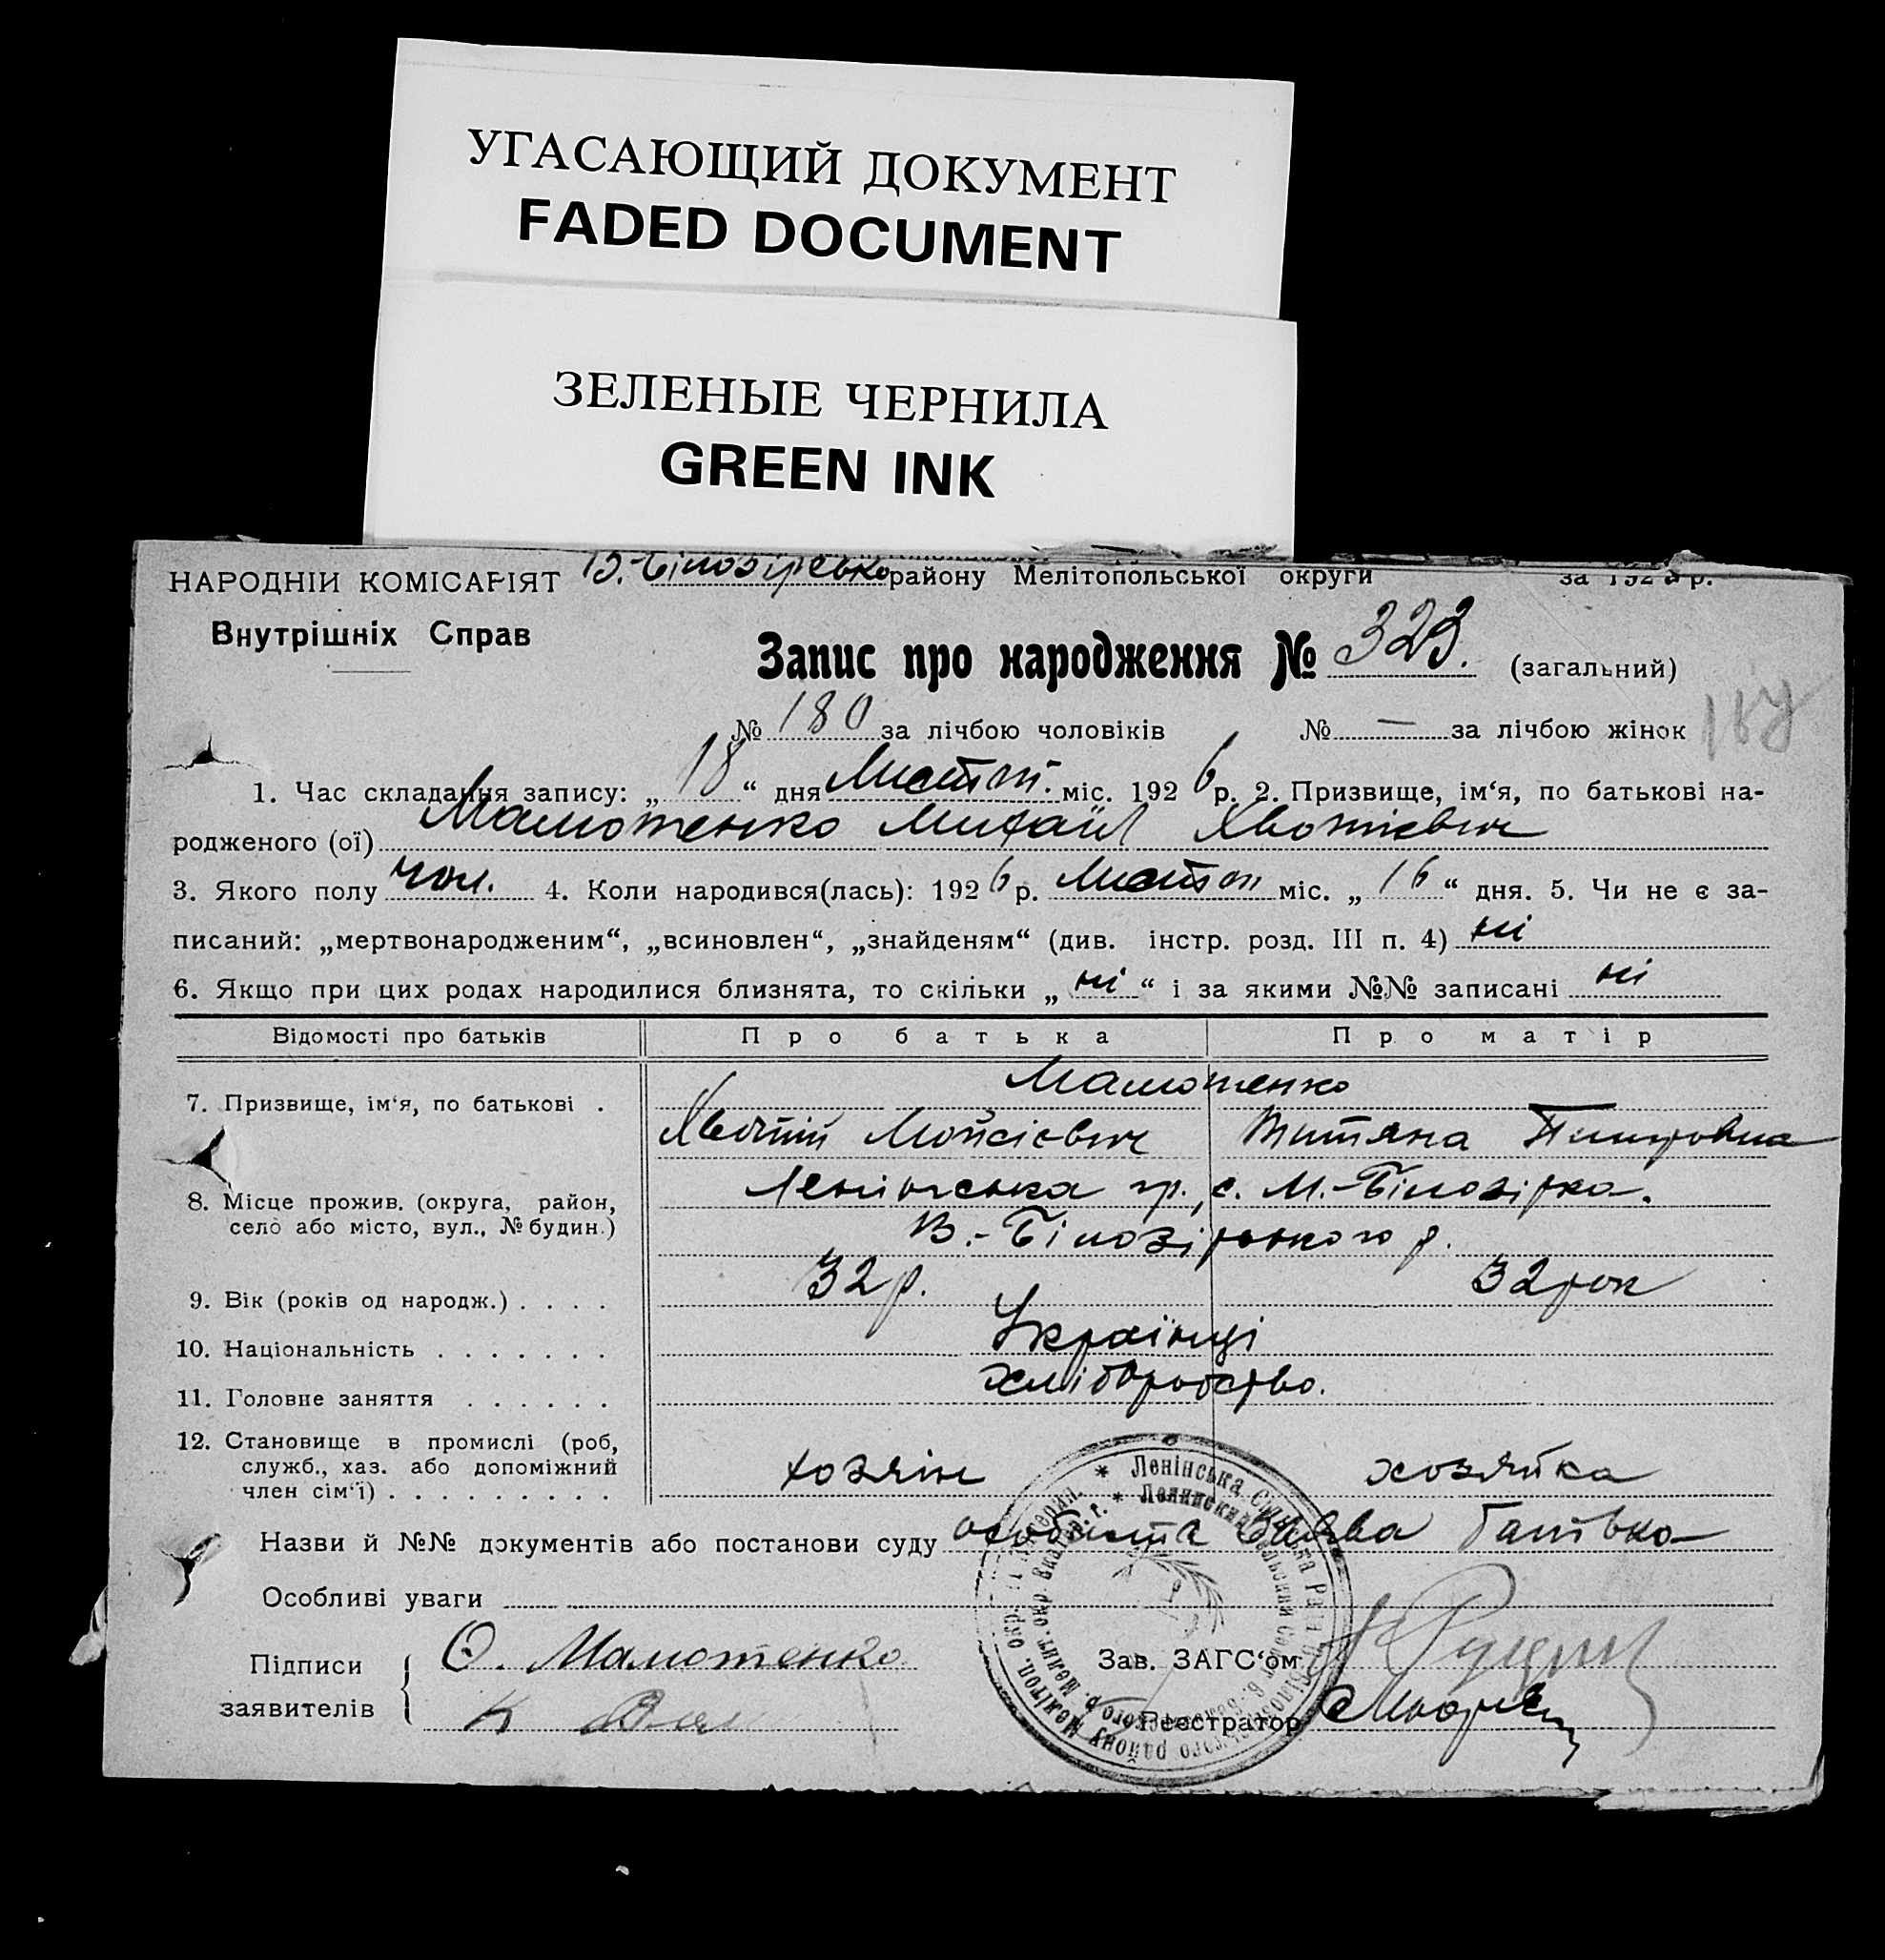 УГАСАЮЩИЙ ДОКУМЕНТ
FADED DOCUMENT
ЗЕЛЕНЫЕ ЧЕРНИЛА
GREEN INK
НАРОДНІЙ КОМІСАРІЯТ В.-Білозірсько району Мелітопольської округи за 192 р.
Внутрішніх Справ
Запис про народження № 323. (загальний)
№ 180 за лічбою чоловіків № — за лічбою жінок
1. Час складання запису: „ 18 “ дня Листоп. міс. 192 6 р. 2. Призвище, ім‘я, по батькові на-
родженого (ої) Мамотенко Михайл Хвотієвич
3. Якого полу чол. 4. Коли народився(лась): 192 6 р. Листоп міс. „ 16 “ дня. 5. Чи не є за-
писаний: „мертвонародженим“, „всиновлен“, „знайденям“ (див. інстр. розд. III п. 4) ні
6. Якщо при цих родах народилися близнята, то скільки „ ні “ і за якими №№ записані ні
Відомості про батьків Про батька Про матір
7. Призвище, ім‘я, по батькові . Мамотенко
Хвотій Мойсієвич Титяна Питровна
8. Місце прожив. (округа, район, Ленінська гр., с. М.-Білозірка.
село або місто, вул., № будин.) В.-Білозірського р.
9. Вік (років од народж.) . . . . 32 р. 32 рок
10. Національність . . . . . . . Українці
11. Головне заняття . . . . . . хліборобство.
12. Становище в промислі (роб,
служб., хаз. або допоміжний хозяін хозяйка
член сім‘ї) . . . . . . . . .
Назви й №№ документів або постанови суду особиста заява батька
Особливі уваги
Підписи Ѳ. Мамотенко Зав. ЗАГС‘ом
заявителів Реєстратор
* Ленінська Сільська Рада В. Білозірського району Мелітоп. окр.